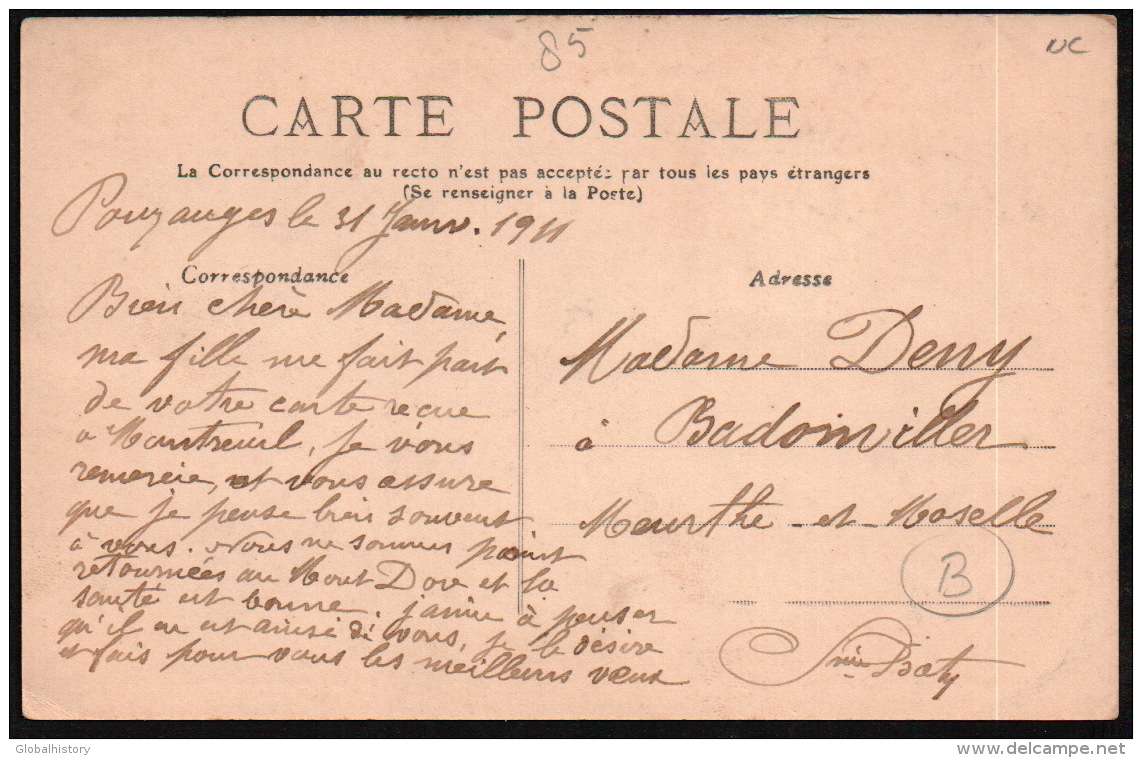 85
NC
CARTE POSTALE
La Correspondance au recto n'est pas acceptée par tous les pays étrangers
(Se renseigner à la Poste)
Pouzauges le 31 Janv. 1911
Correspondance
Bien chère Madame,
ma fille me fait part
de votre carte reçue
à Montreuil, je vous
remercie, et vous assure
que je pense bien souvent
à vous. Nous ne sommes point
retournées au Mont Dore et la
santé est bonne. j'aime à penser
qu'il en est ainsi de vous, je le désire
et fais pour vous les meilleurs vœux
Adresse
Madame Deny
à Badonviller
Meurthe-et-Moselle
B
Globalhistory
delcampe.net